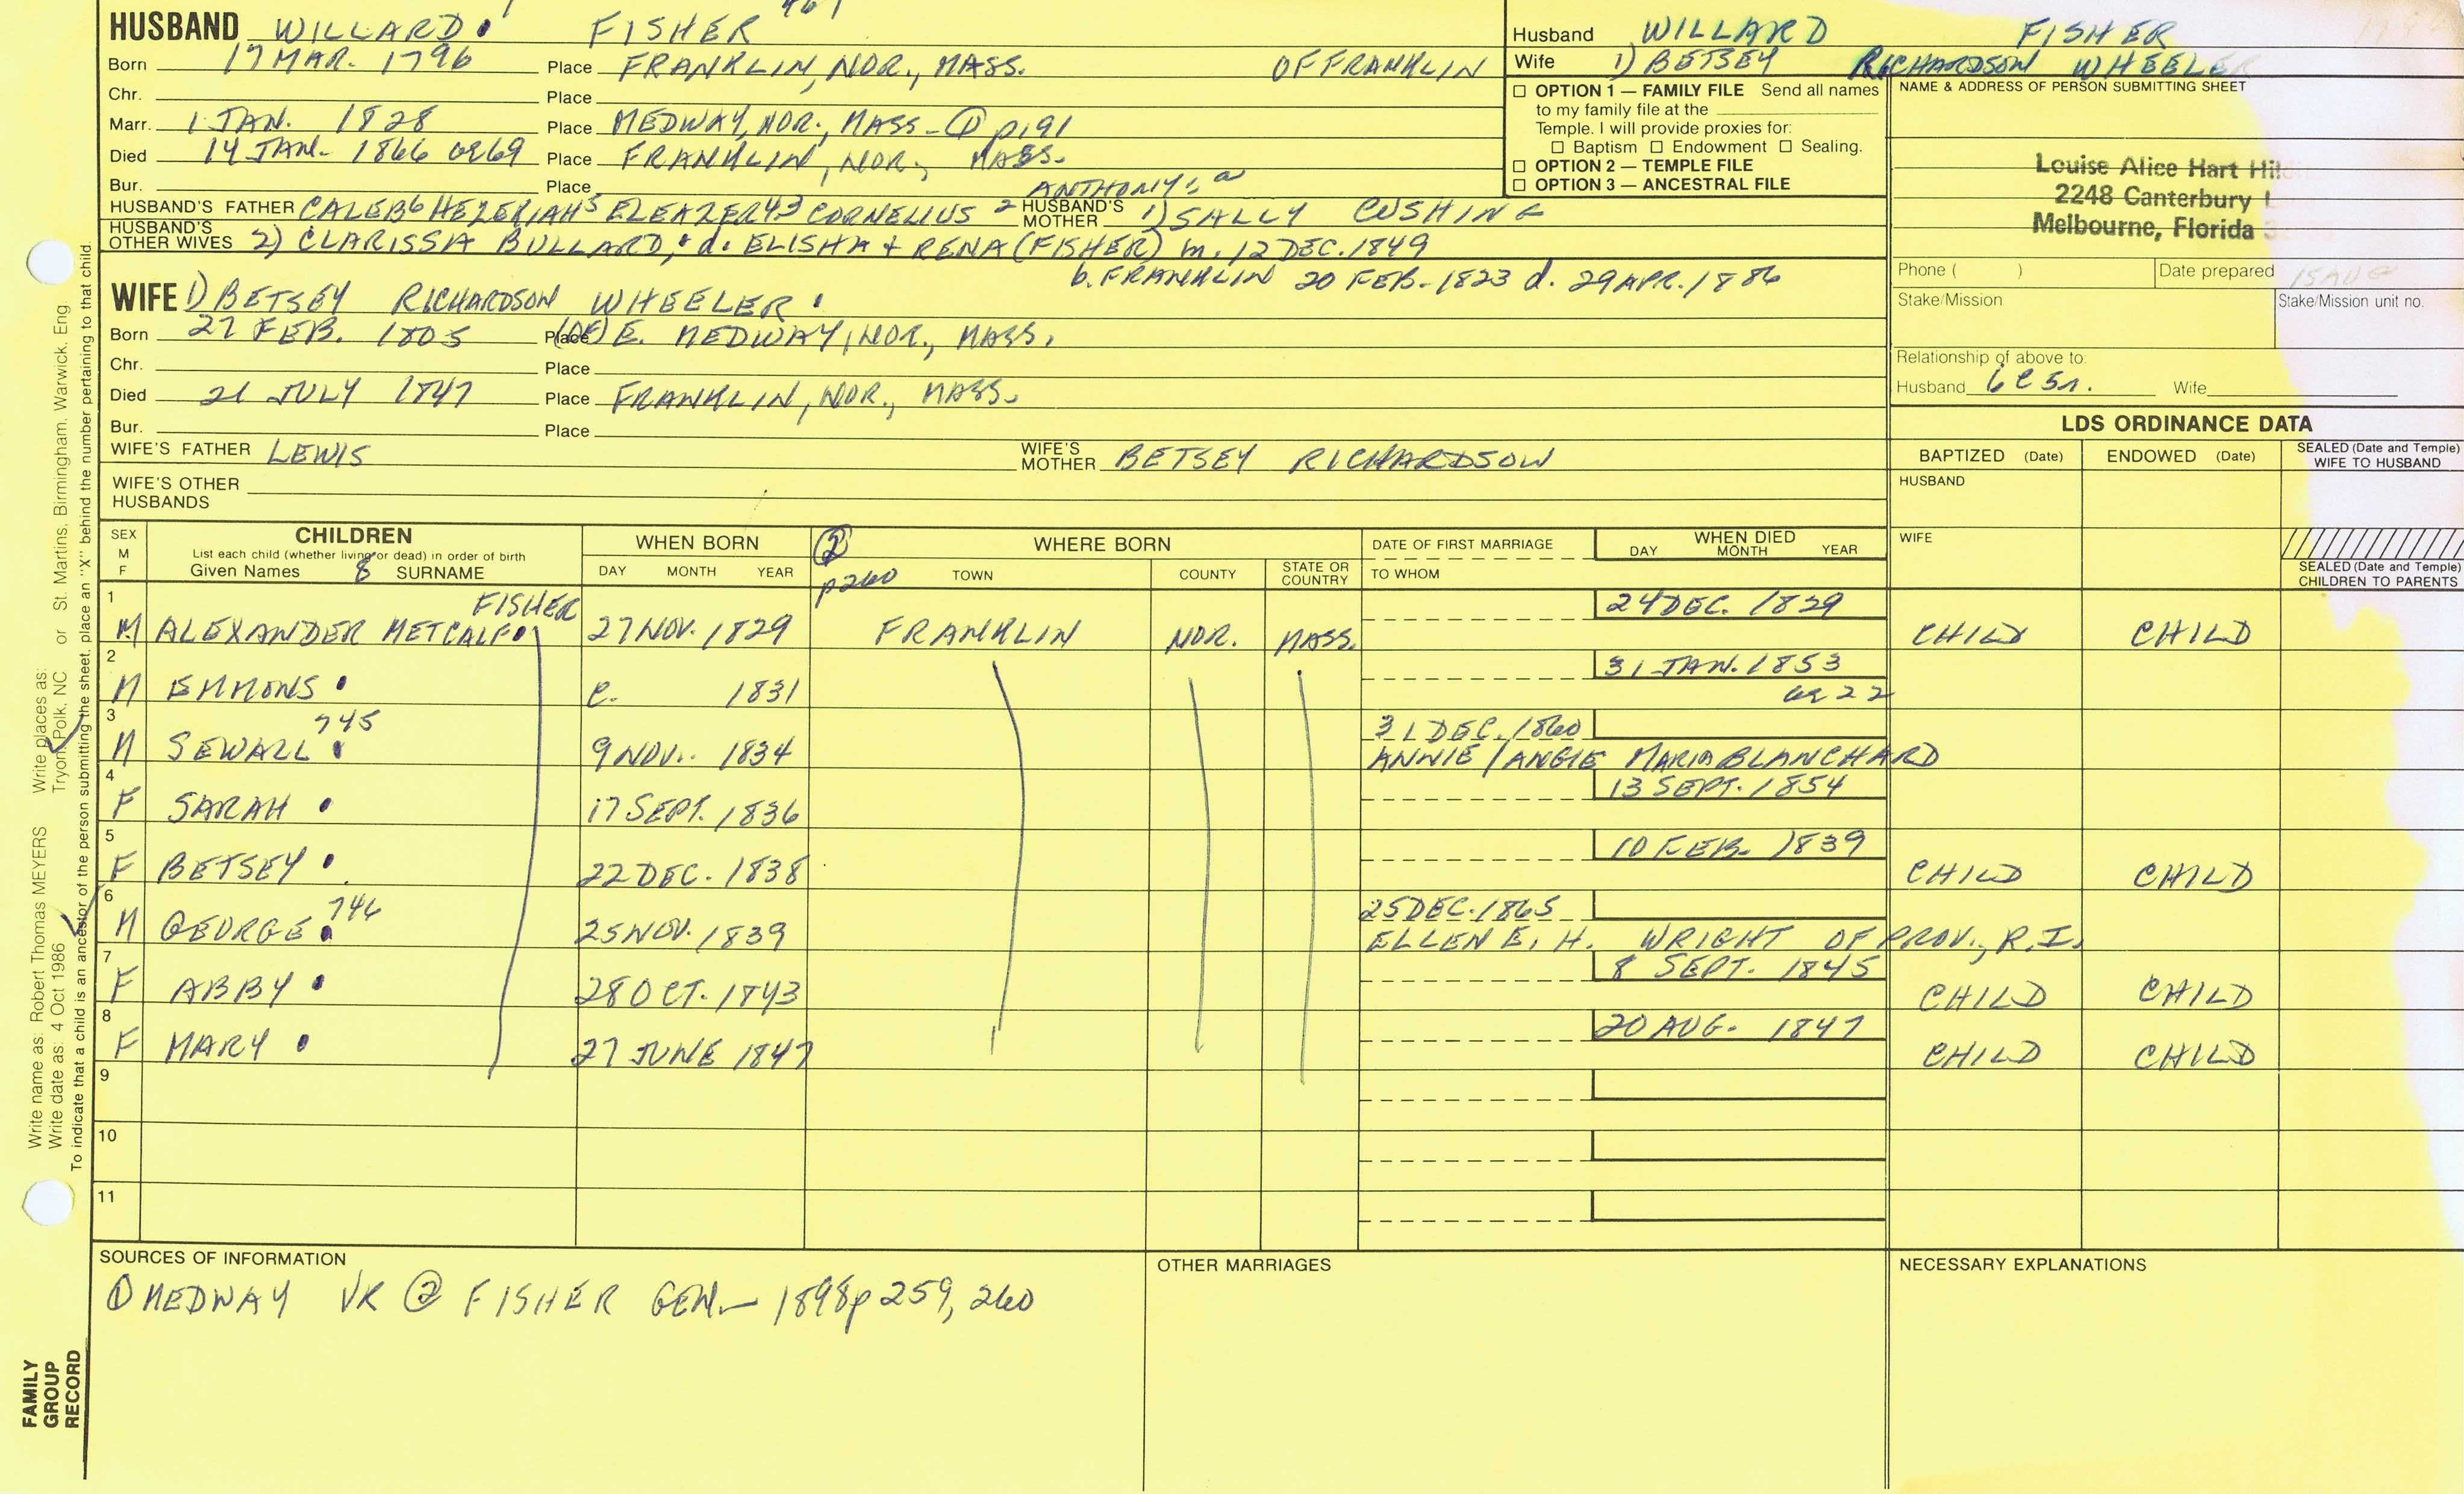 HUSBAND WILLARD FISHER
Born 17 MAR. 1796 Place FRANKLIN, NOR., MASS. OF FRANKLIN
Chr. Place
Marr. 1 JAN. 1828 Place MEDWAY, NOR., MASS - ① p191
Died 14 JAN. 1866 ae69 Place FRANKLIN, NOR., MASS.
Bur. Place
HUSBAND'S FATHER CALEB6 HEZEKIAH5 ELEAZER43 CORNELIUS2 ANTHONY1 a HUSBAND'S MOTHER 1) SALLY CUSHING
HUSBAND'S OTHER WIVES 2) CLARISSA BULLARD, d. ELISHA + RENA (FISHER) m. 12 DEC. 1849
b. FRANKLIN 20 FEB. 1823 d. 29 APR. 1886
WIFE 1) BETSEY RICHARDSON WHEELER
Born 27 FEB. 1805 Place (OF) E. MEDWAY, NOR., MASS.
Chr. Place
Died 21 JULY 1847 Place FRANKLIN, NOR., MASS.
Bur. Place
WIFE'S FATHER LEWIS WIFE'S MOTHER BETSEY RICHARDSON
WIFE'S OTHER HUSBANDS
Husband WILLARD FISHER
Wife 1) BETSEY RICHARDSON WHEELER
☐ OPTION 1 — FAMILY FILE Send all names
to my family file at the
Temple. I will provide proxies for:
☐ Baptism ☐ Endowment ☐ Sealing.
☐ OPTION 2 — TEMPLE FILE
☐ OPTION 3 — ANCESTRAL FILE
NAME & ADDRESS OF PERSON SUBMITTING SHEET
Louise Alice Hart
2248 Canterbury
Melbourne, Florida
Phone ( ) Date prepared
Stake/Mission Stake/Mission unit no.
Relationship of above to:
Husband 6C5r. Wife
LDS ORDINANCE DATA
BAPTIZED (Date) ENDOWED (Date) SEALED (Date and Temple) WIFE TO HUSBAND
HUSBAND
WIFE
SEALED (Date and Temple) CHILDREN TO PARENTS
SEX M F CHILDREN
List each child (whether living or dead) in order of birth
Given Names 8 SURNAME
WHEN BORN DAY MONTH YEAR
② p260 WHERE BORN TOWN COUNTY STATE OR COUNTRY
DATE OF FIRST MARRIAGE TO WHOM
WHEN DIED DAY MONTH YEAR
1 M ALEXANDER METCALF FISHER 27 NOV. 1829 FRANKLIN NOR. MASS. 24 DEC. 1829 CHILD CHILD
2 M EMMONS c. 1831 31 JAN. 1853 ae 22
3 M SEWALL 745 9 NOV. 1834 31 DEC. 1860 ANNIE/ANGIE MARIA BLANCHARD
4 F SARAH 17 SEPT. 1836 13 SEPT. 1854
5 F BETSEY 22 DEC. 1838 10 FEB. 1839 CHILD CHILD
6 M GEORGE 746 25 NOV. 1839 25 DEC. 1865 ELLEN E. H. WRIGHT OF PROV., R.I.
7 F ABBY 28 OCT. 1843 8 SEPT. 1845 CHILD CHILD
8 F MARY 27 JUNE 1847 20 AUG. 1847 CHILD CHILD
9
10
11
SOURCES OF INFORMATION
① MEDWAY VR ② FISHER GEN. - 1898 p 259, 260
OTHER MARRIAGES
NECESSARY EXPLANATIONS
Write name as: Robert Thomas MEYERS Write places as:
Write date as: 4 Oct 1986 Tryon, Polk, NC or St. Martins, Birmingham, Warwick, Eng
To indicate that a child is an ancestor of the person submitting the sheet, place an "X" behind the number pertaining to that child.
FAMILY
GROUP
RECORD